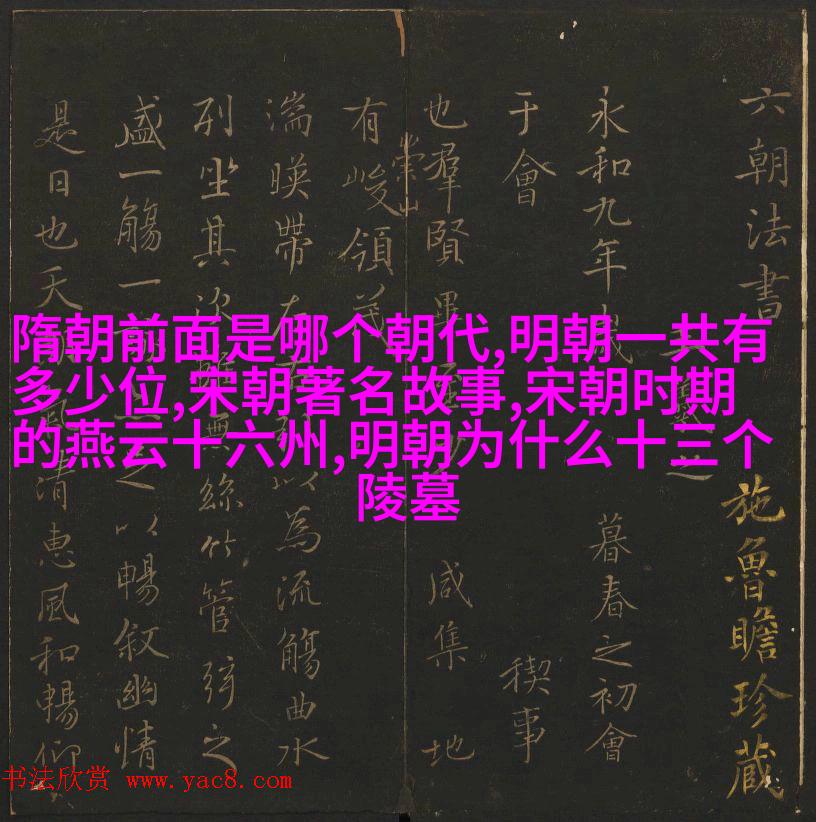 隋朝前面是哪个朝代,明朝一共有
多少位,宋朝著名故事,宋朝时期
的燕云十六州,明朝为什么十三个
陵墓
六朝法書
之
施魯瞻珍藏
永和九年
暮春之初會
于會
稧事
也羣賢畢至
咸集 地
有崇山峻領茂
湍暎帶左
以為流觴曲水
列坐其次
無絲竹管弦之
盛一觴一
之以暢叙幽情
是日也天
風清惠風和暢仰
书法欣赏 www.yac8.com